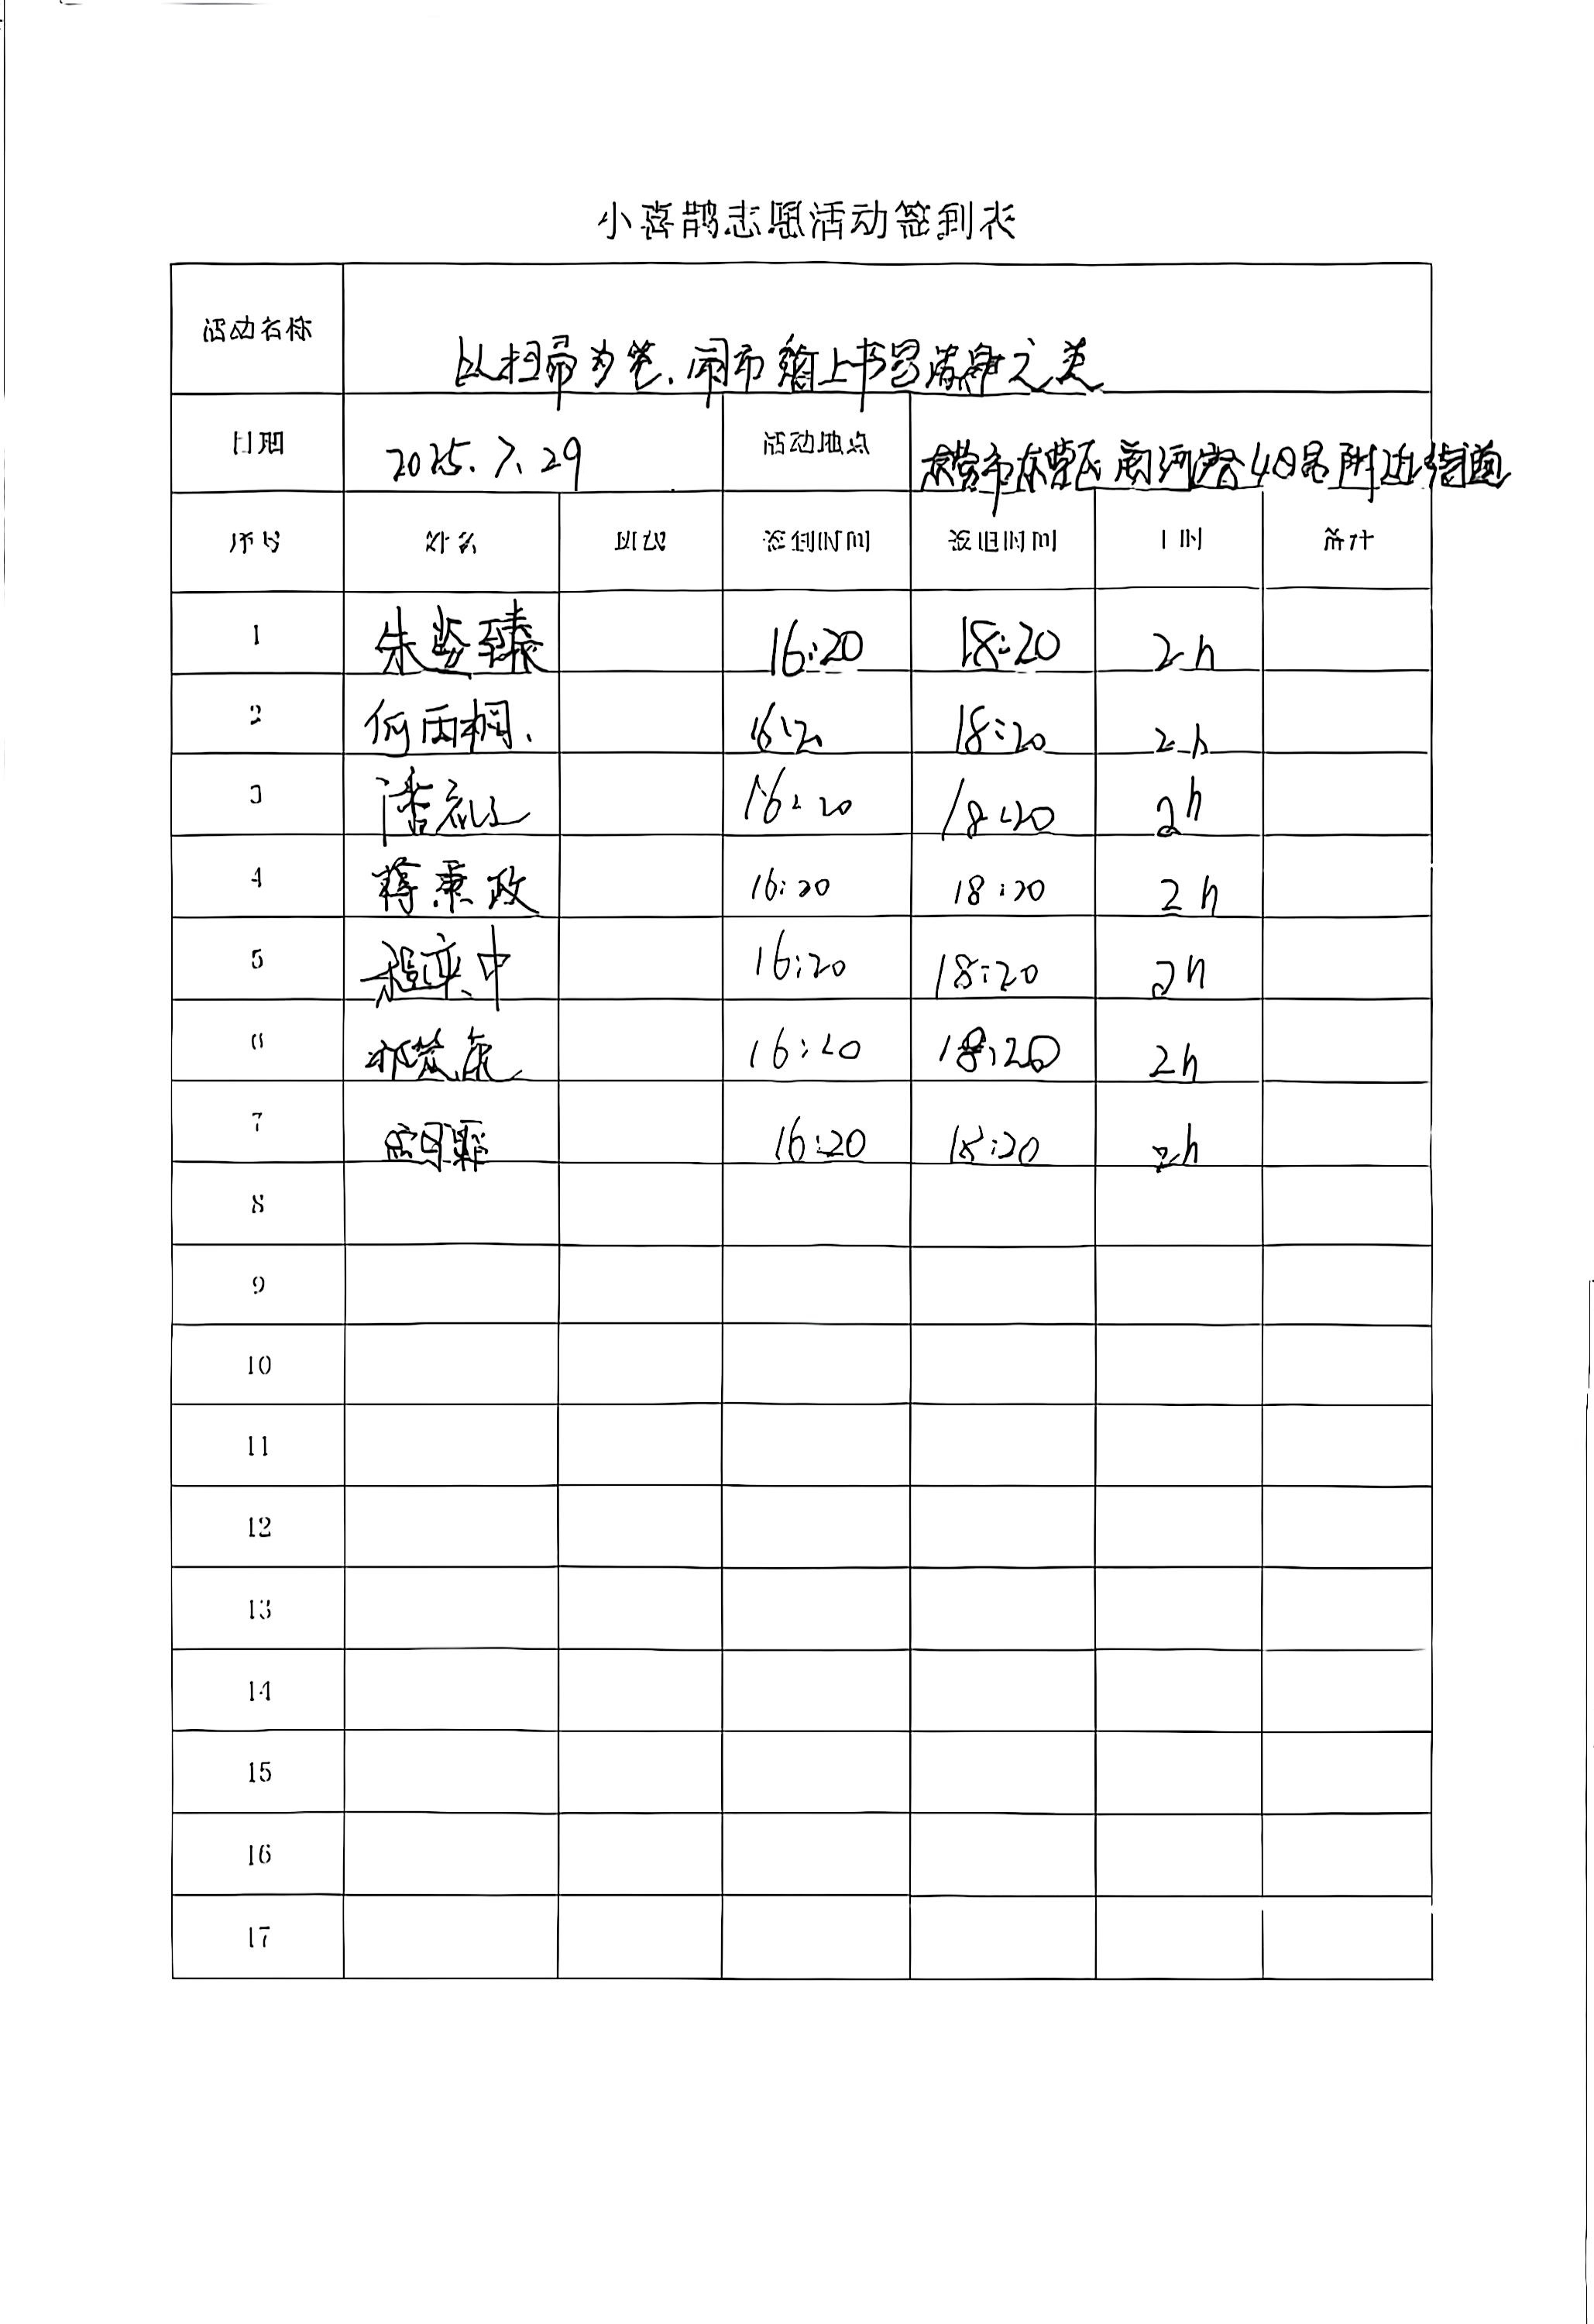 小喜鹊志愿活动签到表
活动名称 以扫帚为笔、闹市街上书写清净之美
日期 2025.7.29 活动地点 东营市东营区南河路408号附近街道
序号 姓名 班级 签到时间 签退时间 工时 备注
1 朱鉴臻 16:20 18:20 2h
2 何雨桐、 16:20 18:20 2h
3 潘 16:20 18:20 2h
4 蒋秉政 16:20 18:20 2h
5 程奕中 16:20 18:20 2h
6 16:20 18:20 2h
7 16:20 18:20 2h
8
9
10
11
12
13
14
15
16
17